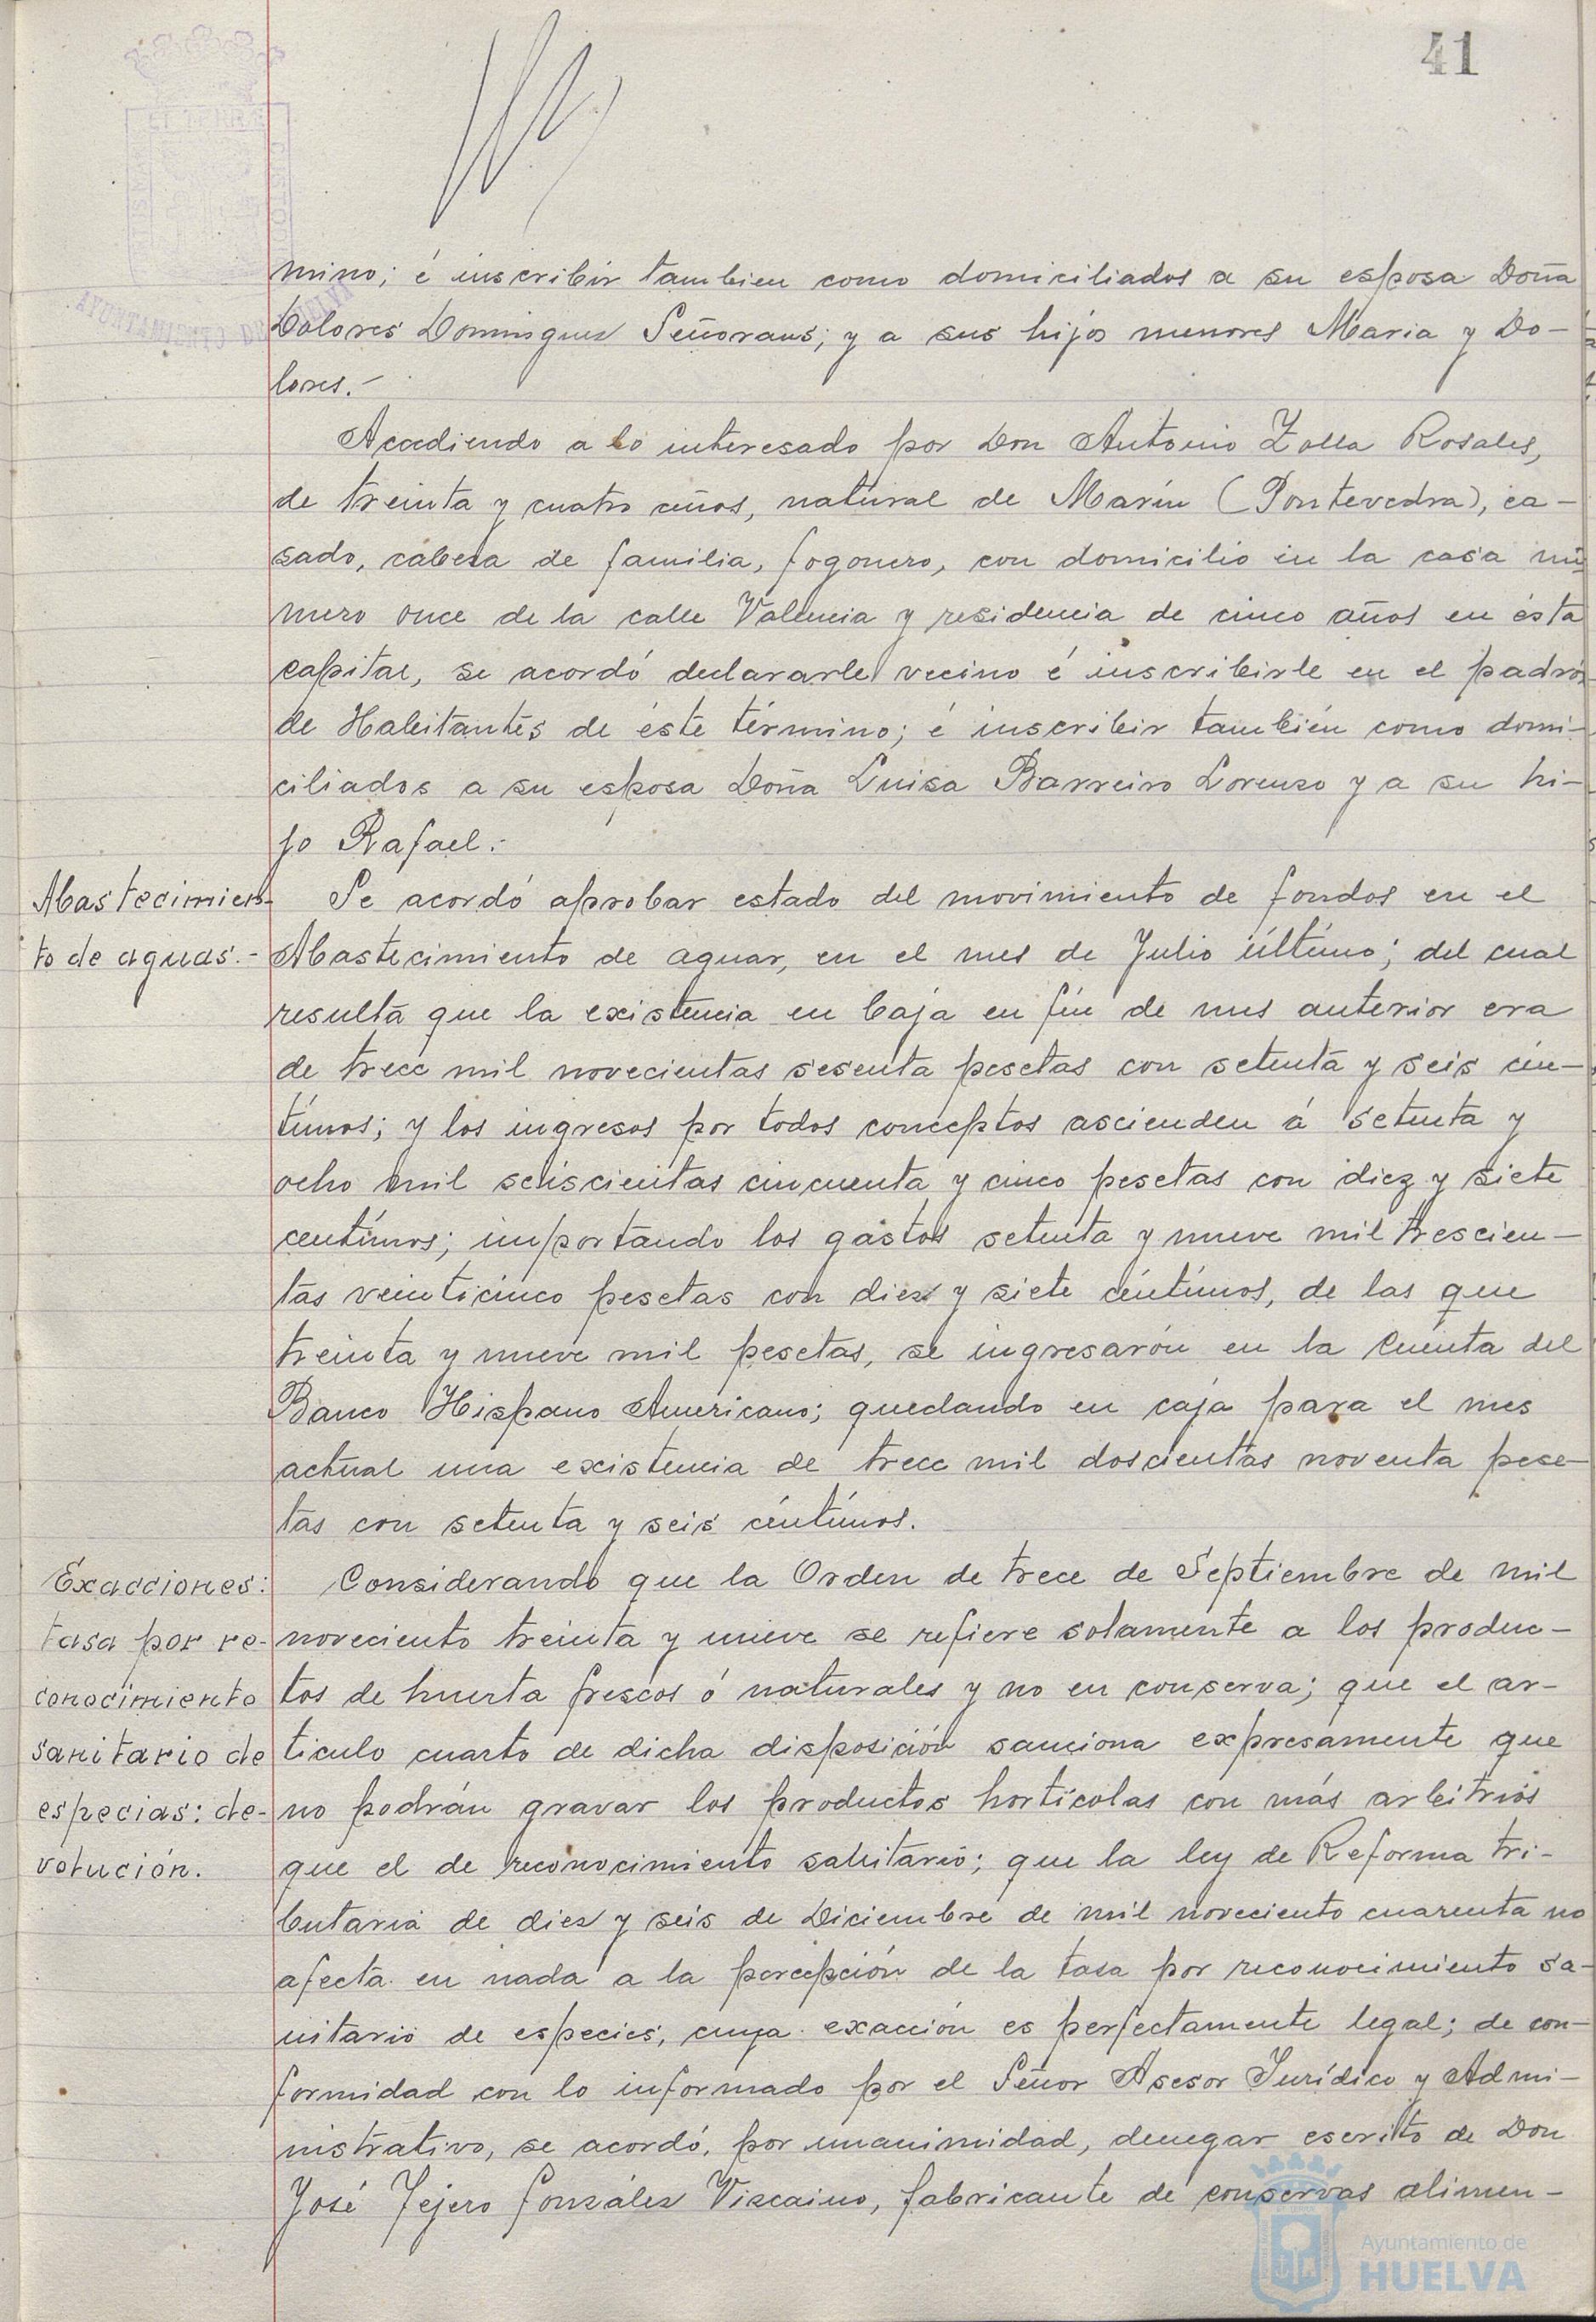 41
mino; é inscribir tambien como domiciliados a su esposa Doña
Dolores Dominguez Señorans; y a sus hijos menores Maria y Do-
lores.-
Accediendo a lo interesado por Don Antonio Zolla Rosales,
de treinta y cuatro años, natural de Marín (Pontevedra), ca-
sado, cabeza de familia, fogonero, con domicilio en la casa nú
mero once de la calle Valencia y residencia de cinco años en ésta
capital, se acordó declararle vecino é inscribirle en el padrón
de Habitantes de éste término; é inscribir también como domi-
ciliados a su esposa Doña Luisa Barreiro Lorenzo y a su hi-
jo Rafael.-
Abastecimien-
to de aguas.-
Se acordó aprobar estado del movimiento de fondos en el
Abastecimiento de aguas, en el mes de Julio último; del cual
resulta que la existencia en caja en fín de mes anterior era
de trece mil novecientas sesenta pesetas con setenta y seis cén-
timos; y los ingresos por todos conceptos ascienden á setenta y
ocho mil seiscientas cincuenta y cinco pesetas con diez y siete
centímos; importando los gastos setenta y nueve mil trescien-
tas veinticinco pesetas con diez y siete céntimos, de las que
treinta y nueve mil pesetas, se ingresarón en la Cuenta del
Banco Hispano Americano; quedando en caja para el mes
actual una existencia de trece mil doscientas noventa pese-
tas con setenta y seis céntimos.
Exacciones:
tasa por re-
conocimiento
sanitario de
especias: de-
volución.
Considerando que la Orden de trece de Septiembre de mil
noveciento treinta y nueve se refiere solamente a los produc-
tos de huerta frescos ó naturales y no en conserva; que el ar-
ticulo cuarto de dicha disposición sanciona expresamente que
no podrán gravar los productos hortícolas con más arbitrios
que el de reconocimiento sanitario; que la ley de Reforma tri-
butaria de diez y seis de Diciembre de mil noveciento cuarenta no
afecta en nada a la percepción de la tasa por reconocimiento sa-
nitario de especies, cuya exacción es perfectamente legal; de con-
formidad con lo informado por el Señor Asesor Jurídico y Admi-
nistrativo, se acordó, por unanimidad, denegar escrito de Don
José Tejero González Vizcaino, fabricante de conservas alimen-
Ayuntamiento de
HUELVA